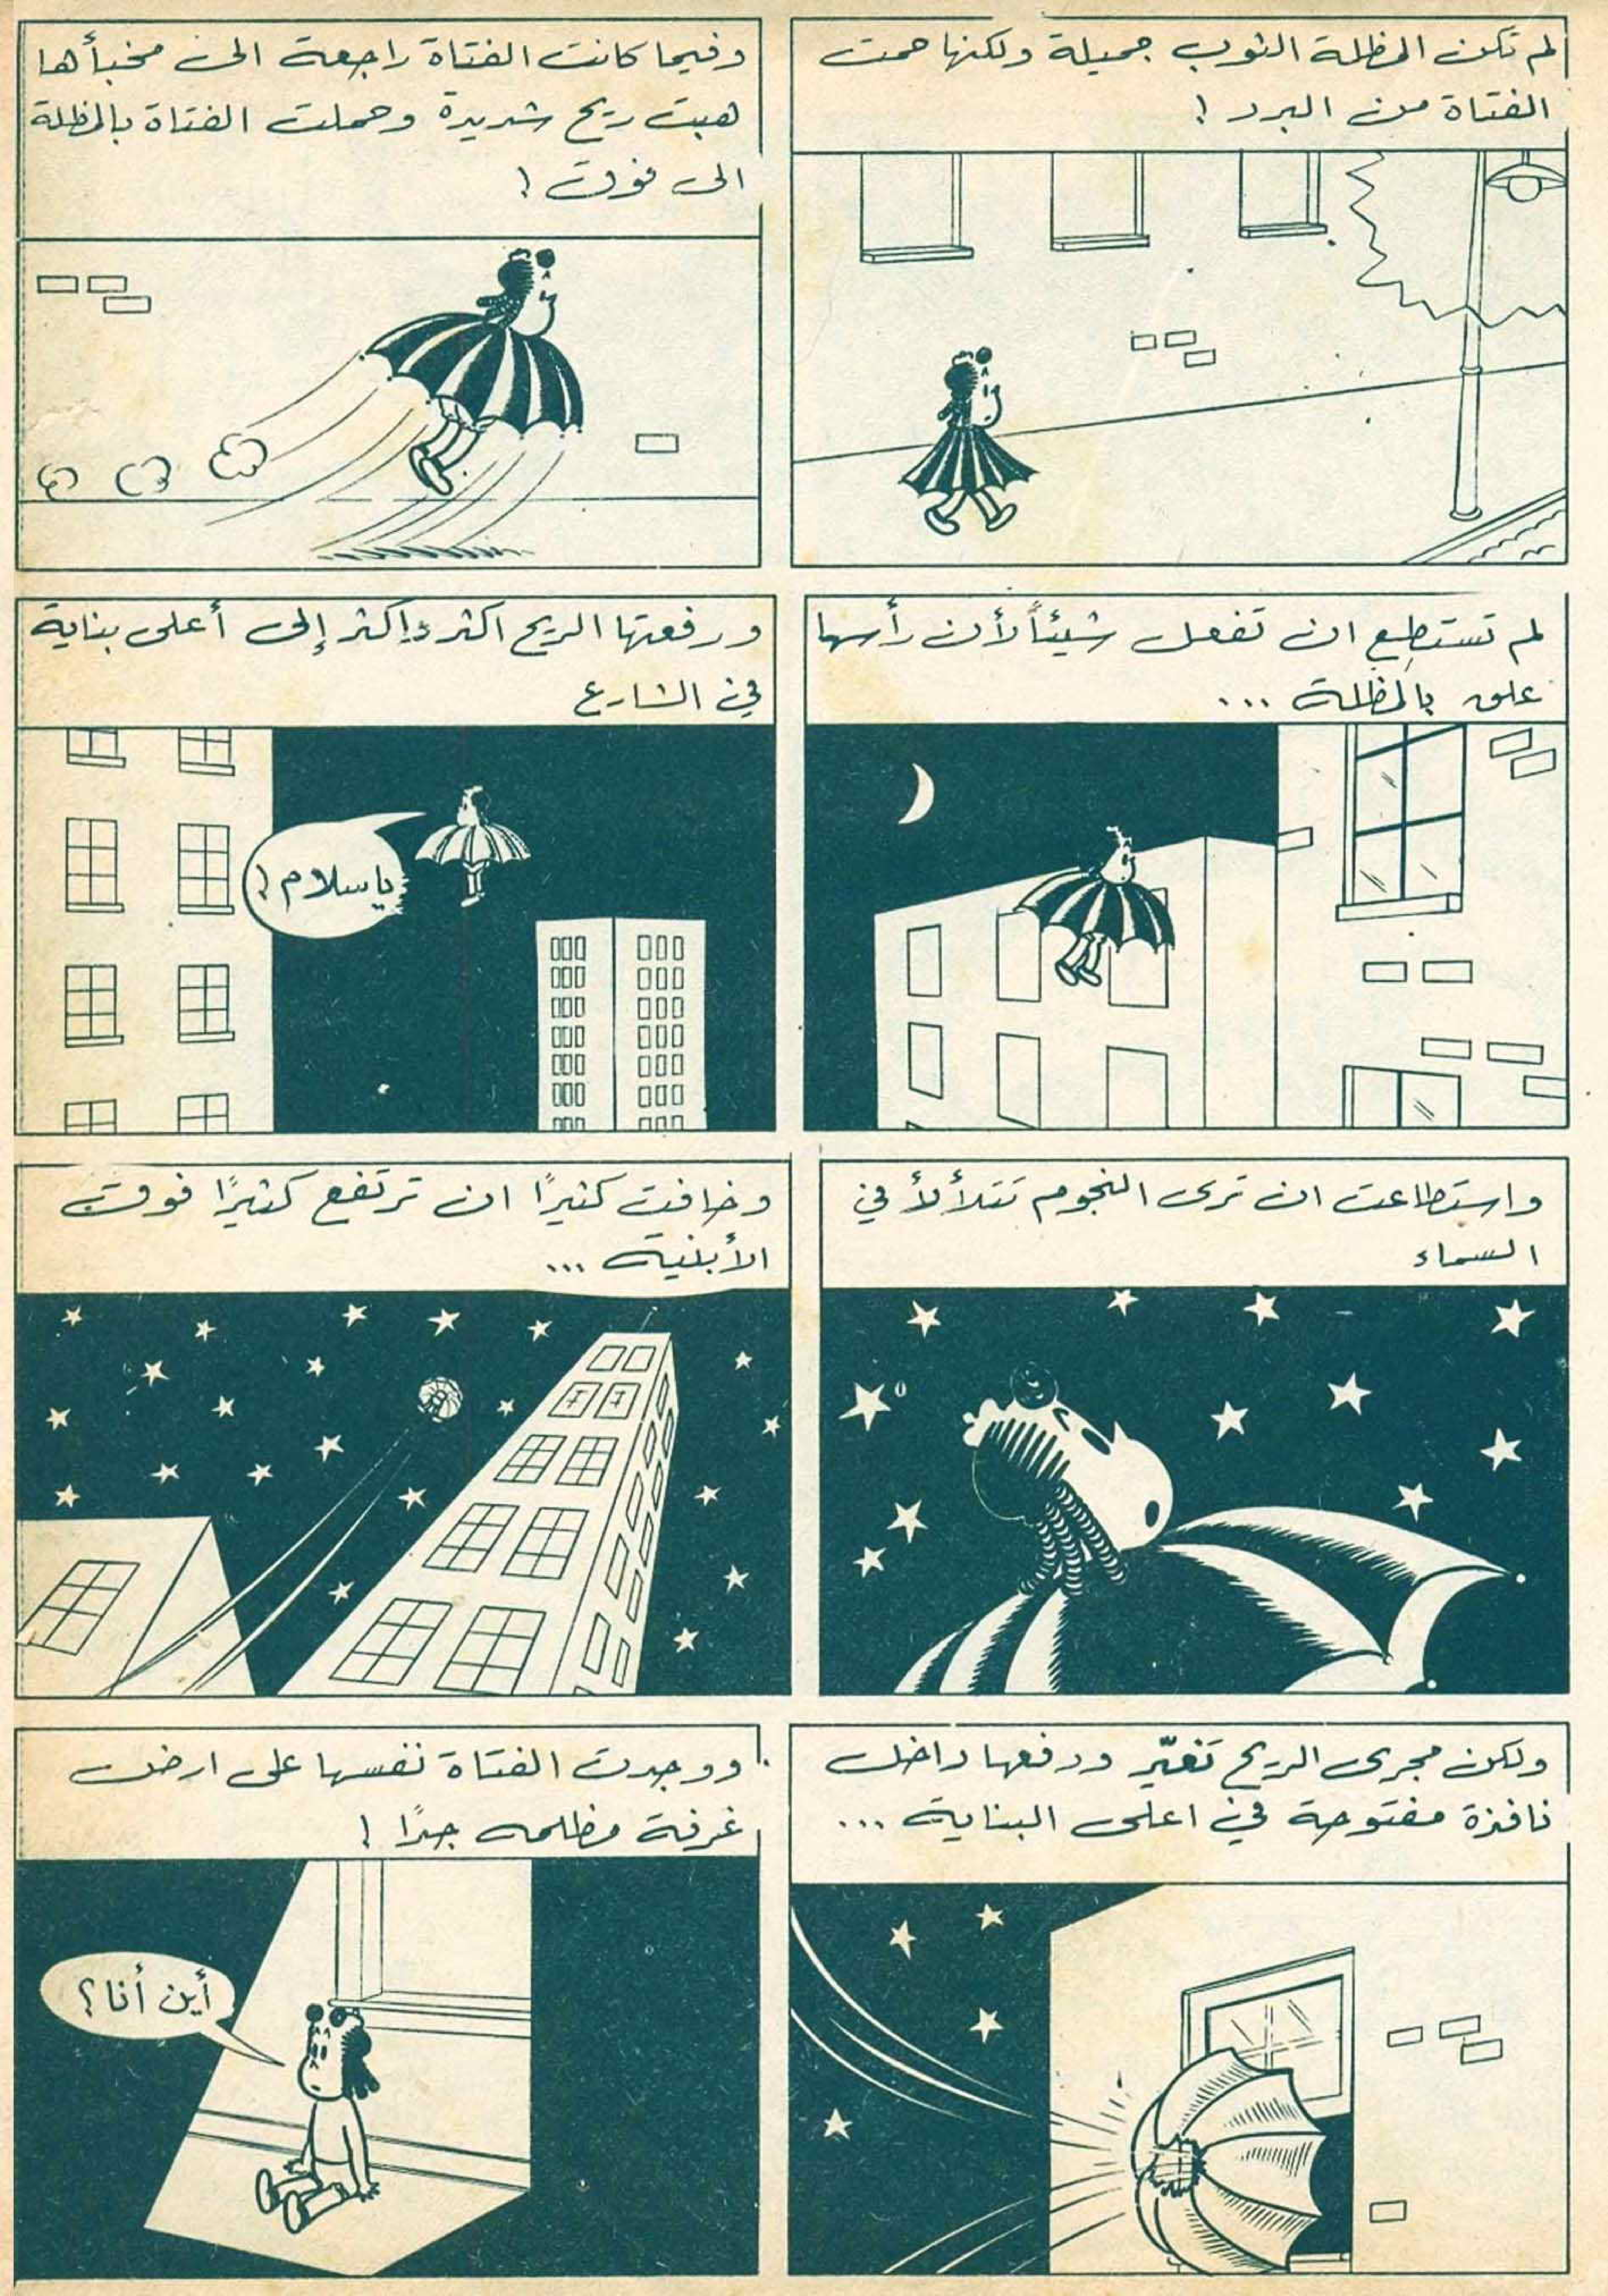 لم تكن المظلة الثوب جميلة ولكنها حمت
الفتاة من البرد !
وفيما كانت الفتاة راجعة الى مخبأها
هبت ريح شديدة وحملت الفتاة بالمظلة
الى فوق !
لم تستطع ان تفعل شيئاً لأن رأسها
علق بالمظلة ...
ورفعتها الريح اكثر واكثر إلى أعلى بناية
في الشارع
يا سلام !
واستطاعت ان ترى النجوم تتلألأ في
السماء
وخافت كثيرًا ان ترتفع كثيرًا فوق
الأبنية ...
ولكن مجرى الريح تغيّر ودفعها داخل
نافذة مفتوحة في اعلى البناية ...
ووجدت الفتاة نفسها على ارض
غرفة مظلمه جدًا !
أين أنا ؟